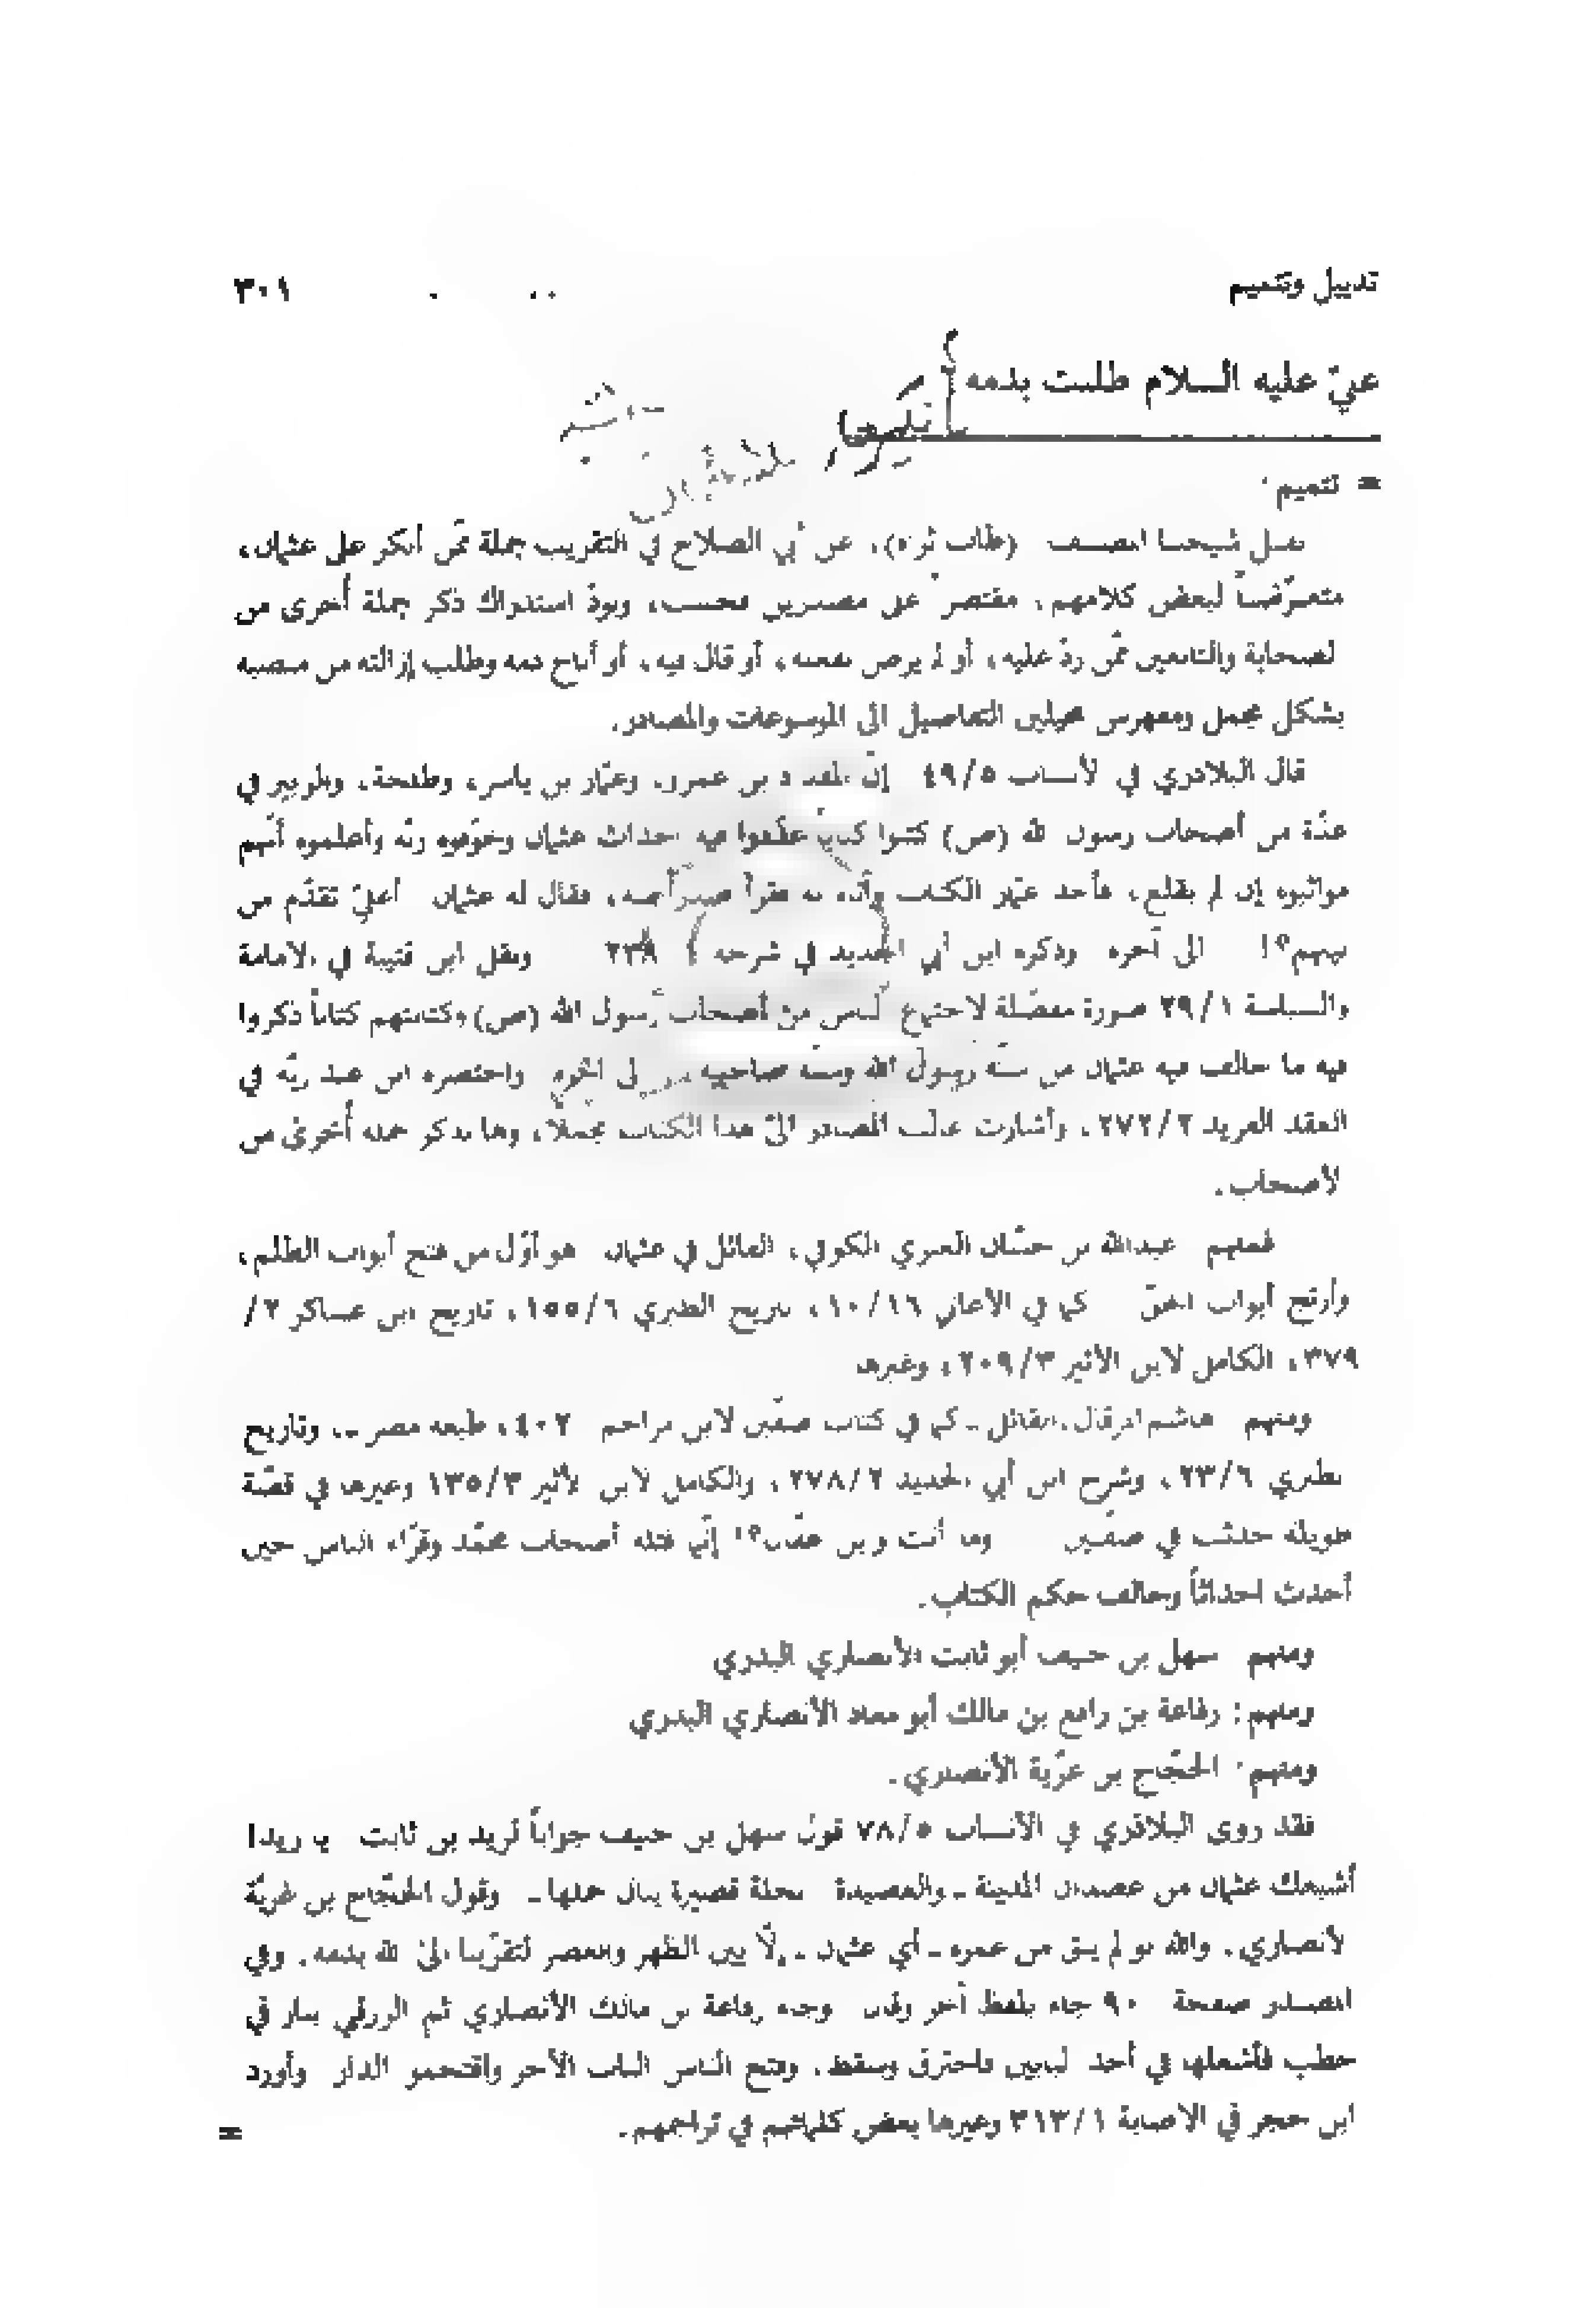 تذييل وتتميم ٣٠١
عليّ عليه السلام طلبت بدمه
= تتميم:
نقل شيخنا المصنف (طاب ثراه)، عن أبي الصلاح في التقريب جملة ممّن أنكر على عثمان،
متعرّضاً لبعض كلامهم، مقتصراً على مصدرين فحسب، وبودّ استدراك ذكر جملة أُخرى من
الصحابة والتابعين ممّن ردّ عليه، أو لم يرض بفعله، أو قال فيه، أو أباح دمه وطلب إزالته من منصبه
بشكل مجمل ومفهرس محيلين التفاصيل الى الموسوعات والمصادر.
قال البلاذري في الأنساب ٤٩/٥ إنّ المقداد بن عمرو، وعمّار بن ياسر، وطلحة، والزبير في
عدّة من أصحاب رسول الله (ص) كتبوا كتاباً عدّدوا فيه أحداث عثمان وخوّفوه ربّه وأعلموه أنّهم
مواثبوه إن لم يقلع، فأخذ عمّار الكتاب وأتاه به فقرأ صدراً منه، فقال له عثمان أعليّ تقدّم من
بينهم؟! الى آخره وذكره ابن أبي الحديد في شرحه ٢٣٩ ونقل ابن قتيبة في الامامة
والسياسة ٢٩/١ صورة مفصّلة لاجتماع الناس من أصحاب رسول الله (ص) وكتابتهم كتاباً ذكروا
فيه ما خالف فيه عثمان من سنّة رسول الله وسنّة صاحبيه الى آخره واختصره ابن عبد ربّه في
العقد الفريد ٢٧٢/٢، وأشارت غالب المصادر الى هذا الكتاب مجملاً، وها نذكر جملة أُخرى من
الأصحاب.
فمنهم عبدالله بن حسّان العنزي الكوفي، القائل في عثمان هو أوّل من فتح أبواب الظلم،
وأرتج أبواب الحقّ كما في الأغاني ١٠/١٦، تاريخ الطبري ١٥٥/٦، تاريخ ابن عساكر ٢/
٣٧٩، الكامل لابن الأثير ٢٠٩/٣، وغيرها
ومنهم هاشم المرقال، القائل ـ كما في كتاب صفّين لابن مزاحم ٤٠٢، طبعة مصر ـ، وتاريخ
الطبري ٢٣/٦، وشرح ابن أبي الحديد ٢٧٨/٢، والكامل لابن الأثير ١٣٥/٣ وغيرها في قصّة
طويلة حدثت في صفّين وما أنت وابن عفّان؟! إنّما قتله أصحاب محمّد وقرّاء الناس حين
أحدث احداثاً وخالف حكم الكتاب.
ومنهم سهل بن حنيف أبو ثابت الأنصاري البدري
ومنهم: رفاعة بن رافع بن مالك أبو معاذ الأنصاري البدري
ومنهم: الحجّاج بن غزّية الأنصاري.
فقد روى البلاذري في الأنساب ٧٨/٥ قول سهل بن حنيف جواباً لزيد بن ثابت يا زيد!
أشبعك عثمان من عضدان المدينة ـ والعضيدة نخلة قصيرة ينال حملها ـ وقول الحجّاج بن غزيّة
الأنصاري، والله لو لم يبق من عمره ـ أي عثمان ـ إلّا بين الظهر والعصر لتقرّبنا الى الله بدمه. وفي
المصدر صفحة ٩٠ جاء بلفظ آخر وقال وجاء رفاعة بن مالك الأنصاري ثم الزرقي بنار في
حطب فأشعلها في أحد البابين فاحترق وسقط، وفتح الناس الباب الآخر واقتحموا الدار وأورد
ابن حجر في الاصابة ٣١٣/١ وغيرها بعض كلماتهم في تراجمهم.
=